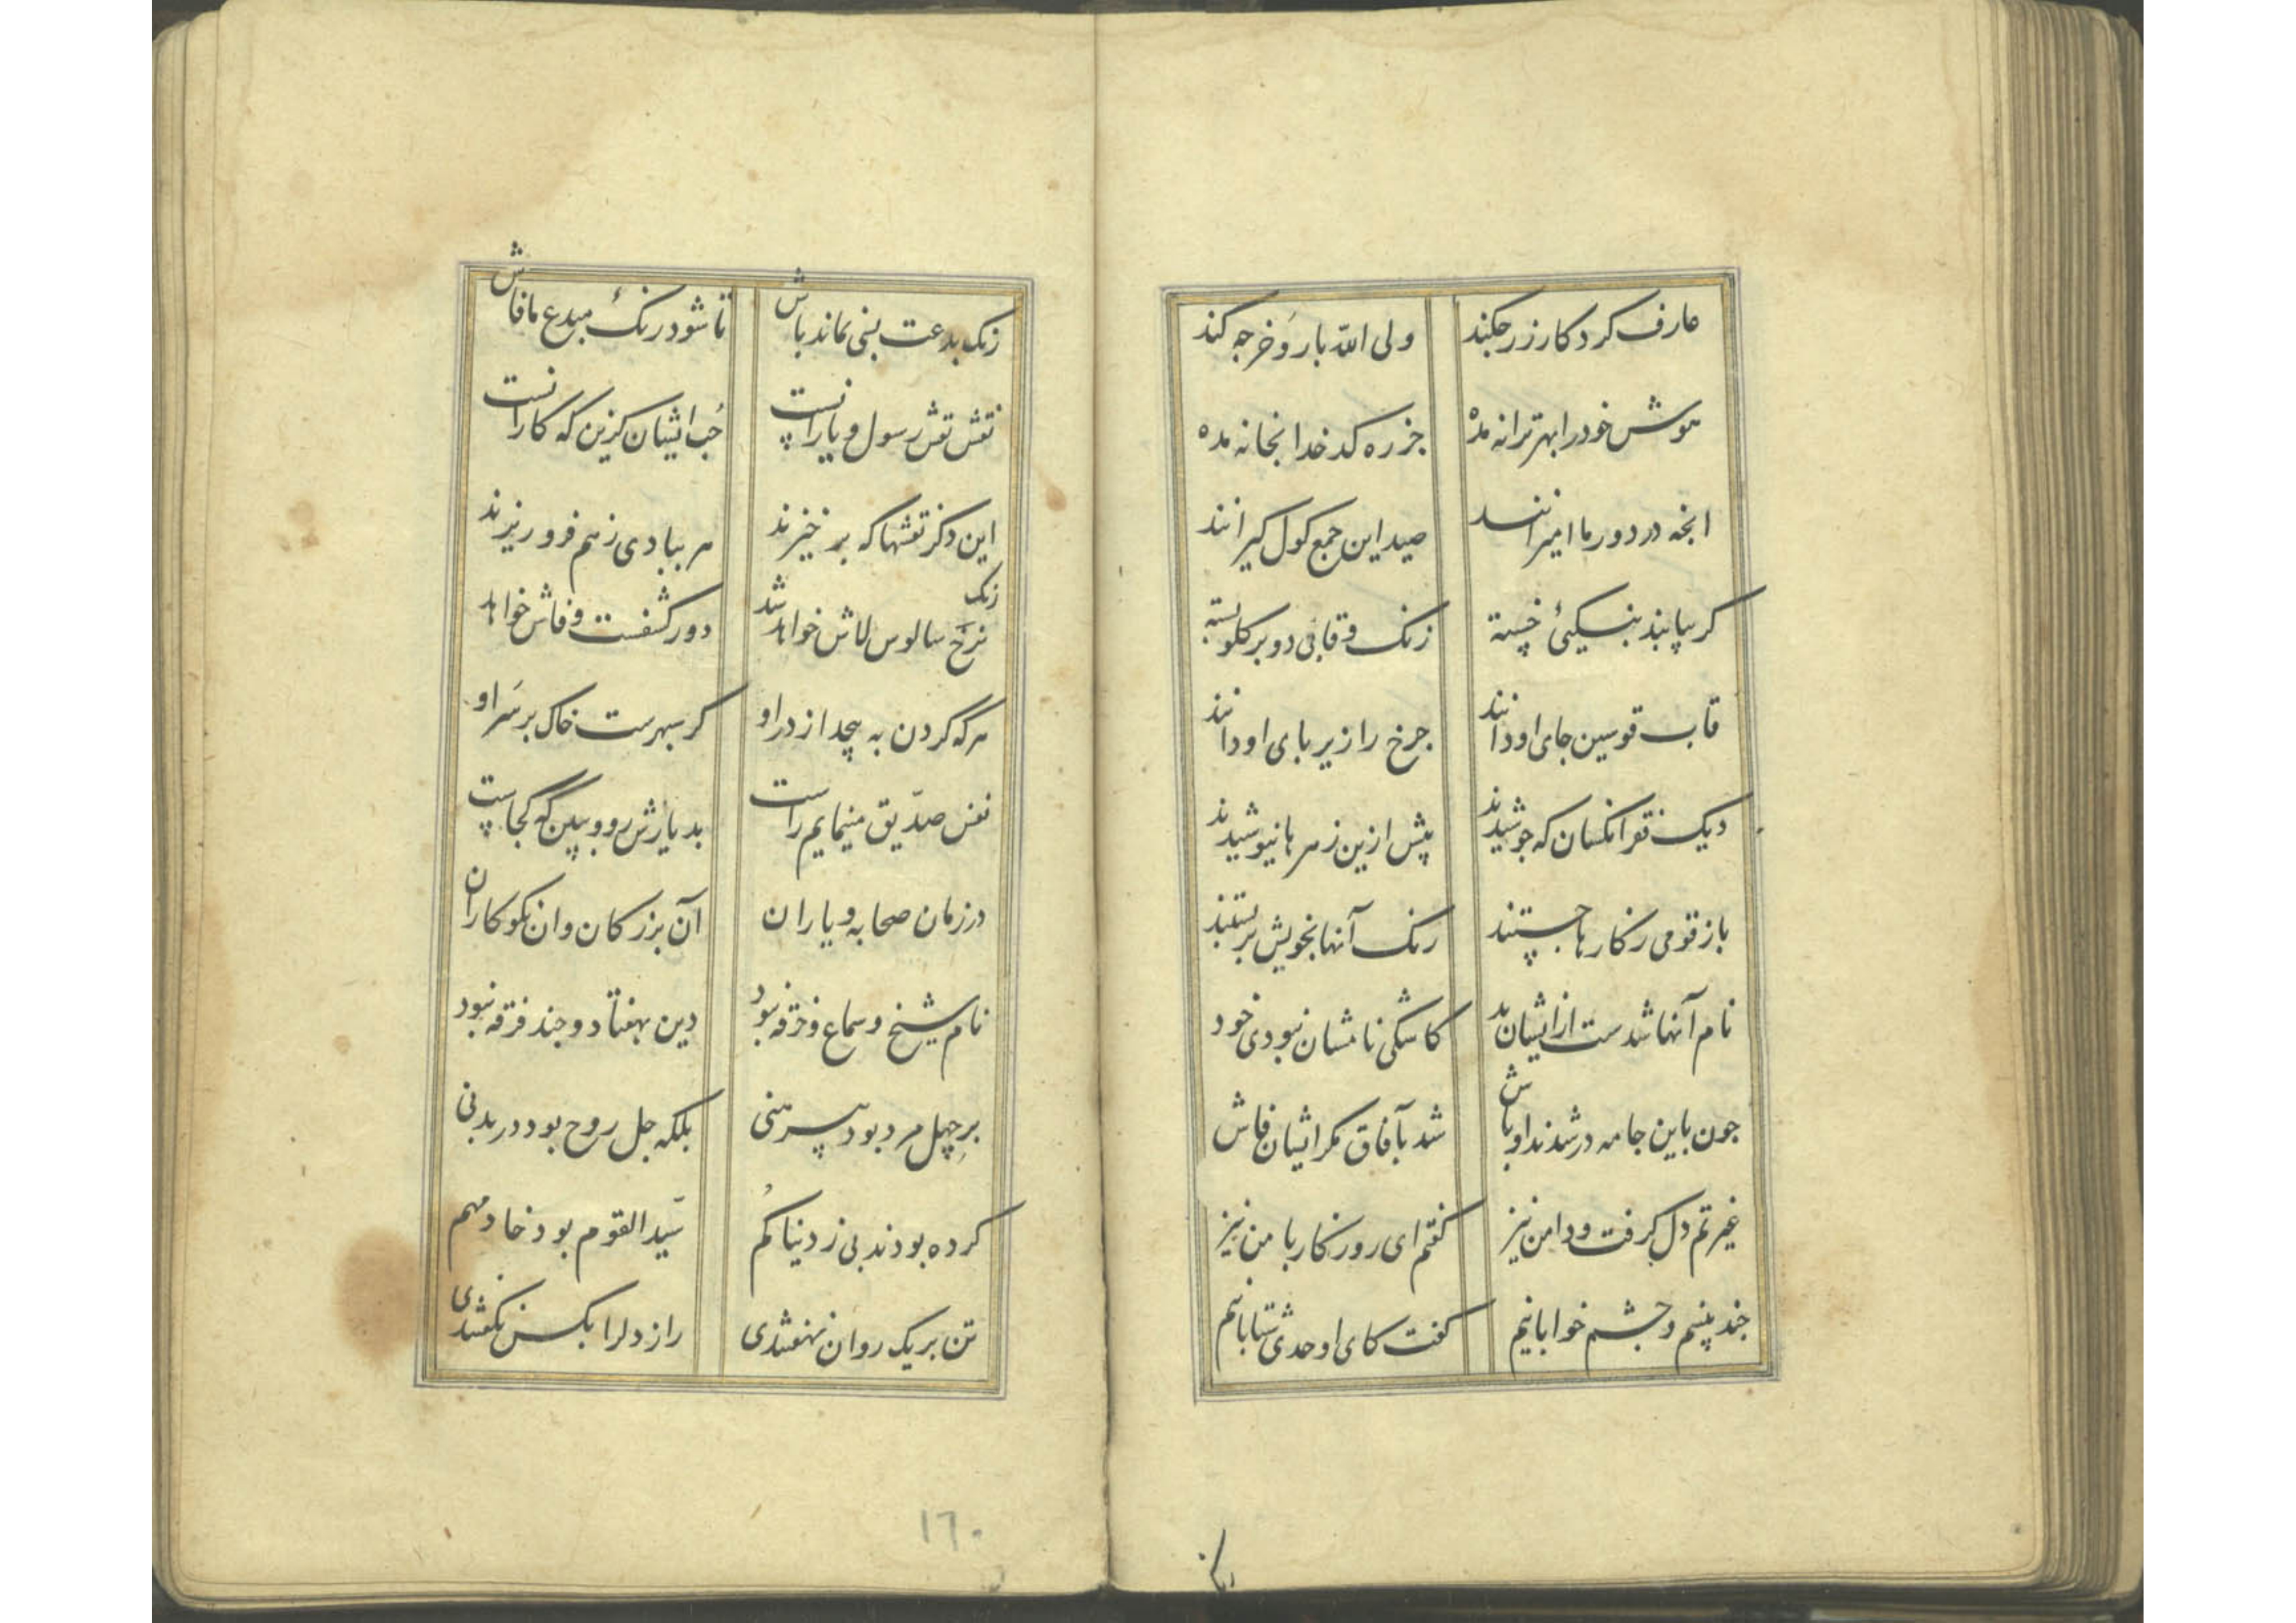 عارف کردکار زر جکند ولی الله بار و خرجه کند
هوش خود را بهر ترانه مده جز ره کدخدا بخانه مده
انچه در دور ما امیرانند صید این جمع کول کیرانند
کر بپا بند بنسکیٔ خسته زنک وقابی دو بر کلو بسته
قاب قوسین جای او دانند جرخ را زیر بای او دانند
دیک فقر انکسان که جوشیدند پیش ازین زهرها نیوشیدند
باز قومی ز کارها جستند رنک آنها بخویش بربستند
نام آنها شدست ازایشان بد کاشکی نامشان نبودی خود
جون باین جامه در شدند اوباش شد بآفاق مکر ایشان فاش
غیرتم دل کرفت ودامن نیز کفتم ای روزکار با من نیز
جند بینم وجشم خوابانیم کفت کای اوحدی شتابانیم
رنک بدعت بنی نماند باش تا شود رنکٔ مبدع ما فاش
نقش نقش رسول ویارانست حُب ایشان کزین که کار انست
این دکر نقشها که برخیزند هر ببادی زهم فرو ریزند
رنک
نرخ سالوس لاش خواهد شد دور کشفست وفاش خواهد
هرکه کردن به پیچد از در او کر سپهرست خاک بر سَر او
نفس صدّیق مینمایم راست بد یارش رو وببین که کجاست
در زمان صحابه ویاران آن بزرکان وان نکوکاران
نام شیخ وسماع وخرقه نبود دین بهفتاد وجند فرقه نبود
برِ چهل مرد بود پیرهنی بلکه جل روح بود در بدنی
کرده بودند پی ز دنیا کُم سیّد القوم بود خادمهم
تن بریک روان نهفتندی راز دل را بکس نکفتندی
١٦٠